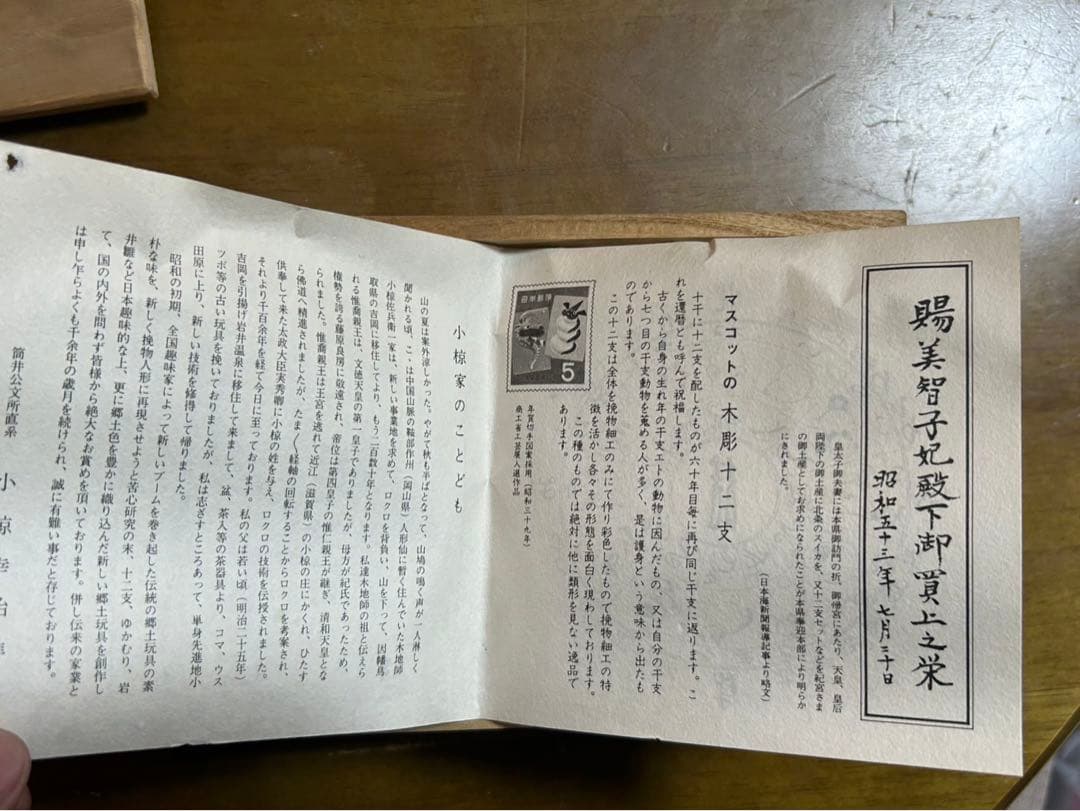 賜美智子妃殿下御買上之栄
昭和五十三年七月三十日
皇太子御夫妻には本県御訪問の折、御帰宮にあたり、天皇、皇后
両陛下の御土産に北条のスイカを、又十二支セットなどを紀宮さま
の御土産としてお求めになられたことが本県奉迎本部により明らか
にされました。
(日本海新聞報導記事より略文)
マスコットの木彫十二支
十干に十二支を配したものが六十年目毎に再び同じ干支に返ります。こ
れを還暦とも呼んで祝福します。
古くから自身の生れ年の干支エトの動物に因んだもの、又は自分の干支
から七つ目の干支動物を蒐める人が多く、是は護身という意味から出たも
のであります。
この十二支は全体を挽物細工のみにて作り彩色したもので挽物細工の特
徴を活かし各々その形態を面白く現わしております。
この種のものでは絶対に他に類形を見ない逸品で
あります。
日本郵便
5
年賀切手図案採用(昭和三十九年)
商工省工芸展入選作品
小椋家のことども
山の夏は案外涼しかった。やがて秋も半ばとなって、山鳩の鳴く声が一人淋しく
聞かれる頃、ここは中国山脈の鞍部作州(岡山県)人形仙に暫く住んでいた木地師
小椋佐兵衛一家は、新しい事業地を求めて、ロクロを背負い、山を下って、因幡鳥
取県の吉岡に移住してより、もう二百数十年となります。私達木地師の祖と伝えら
れる惟喬親王は、文徳天皇の第一皇子で有りましたが、母方が紀氏であったため、
権勢を誇る藤原良房に敬遠され、帝位は第四皇子の惟仁親王が継ぎ、清和天皇とな
られました。惟喬親王は王宮を逃れて近江(滋賀県)の小椋の庄にかくれ、ひたす
ら佛道へ精進されましたが、たま〱経軸の回転することからロクロを考案され、
供奉して来た太政大臣実秀卿に小椋の姓を与え、ロクロの技術を伝授されました。
それより千百余年を経て今日に至っております。私の父は若い頃(明治二十五年)
吉岡を引揚げ岩井温泉に移住して来まして、盆、茶入等の茶器具より、コマ、ウス
ツボ等の古い玩具を挽いておりましたが、私は志ざすところあって、単身先進地小
田原に上り、新しい技術を修得して帰りました。
昭和の初期、全国趣味家によって新しいブームを巻き起した伝統の郷土玩具の素
朴な味を、新しく挽物人形に再現させようと苦心研究の末、十二支、ゆかむり、岩
井雛など日本趣味的な上、更に郷土色を豊かに織り込んだ新しい郷土玩具を創作し
て、国の内外を問わず皆様から絶大なお賞めを頂いております。併し伝来の家業と
は申し乍らよくも千余年の歳月を続けられ、誠に有難い事だと存じております。
筒井公文所直系
小椋幸治